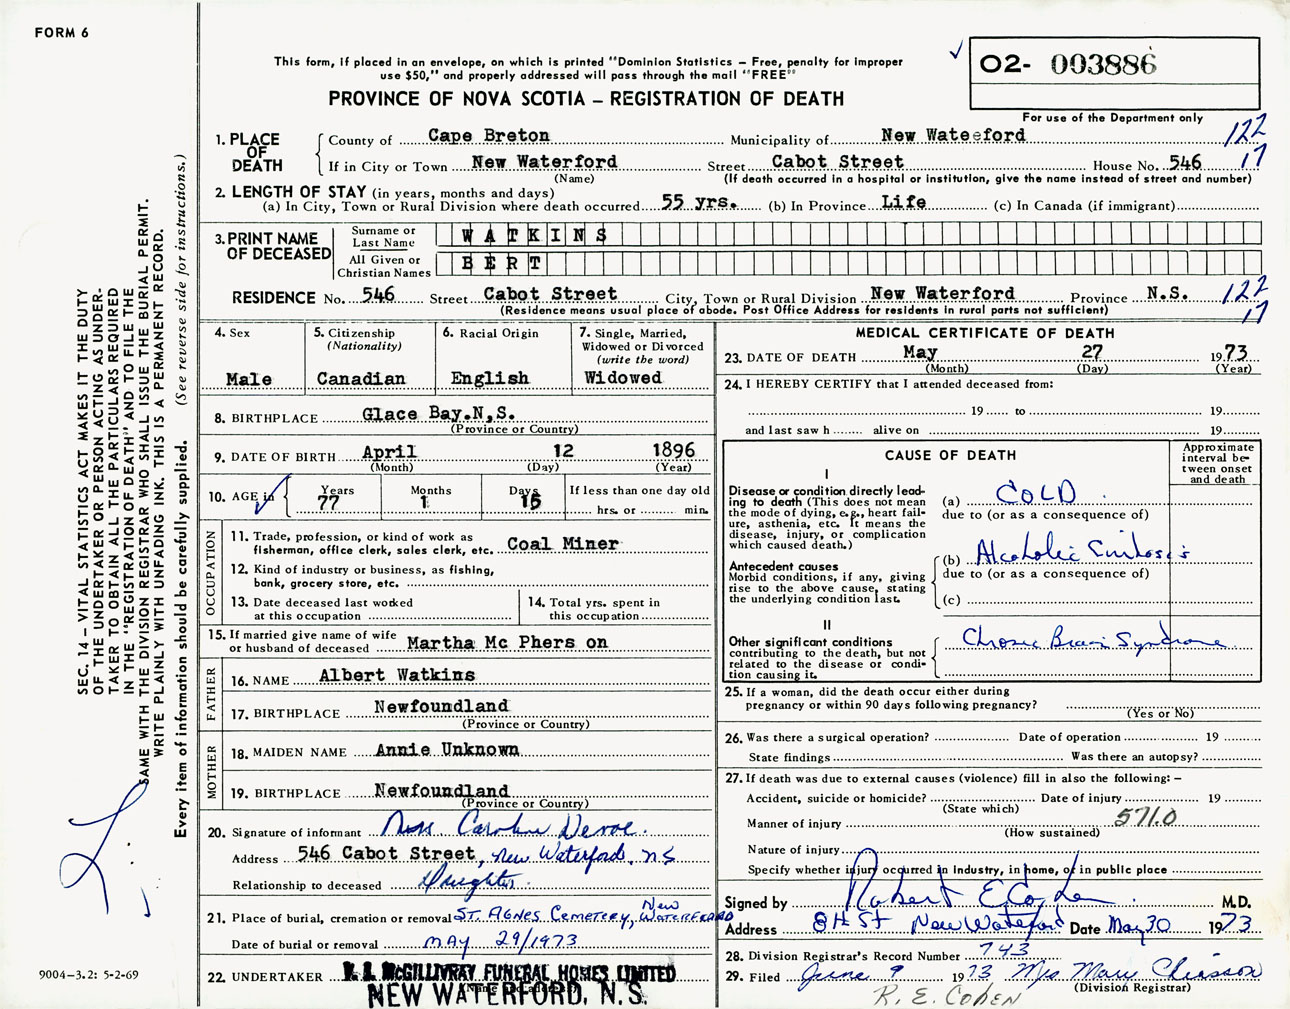 FORM 6
This form, if placed in an envelope, on which is printed "Dominion Statistics – Free, penalty for improper
use $50," and properly addressed will pass through the mail "FREE"
PROVINCE OF NOVA SCOTIA – REGISTRATION OF DEATH
02- 003886
For use of the Department only
1. PLACE OF DEATH
County of Cape Breton Municipality of New Wateeford 122
If in City or Town New Waterford Street Cabot Street House No. 546 17
(Name) (If death occurred in a hospital or institution, give the name instead of street and number)
2. LENGTH OF STAY (in years, months and days)
(a) In City, Town or Rural Division where death occurred 55 yrs. (b) In Province Life (c) In Canada (if immigrant)
3. PRINT NAME OF DECEASED
Surname or Last Name WATKINS
All Given or Christian Names BERT
RESIDENCE No. 546 Street Cabot Street City, Town or Rural Division New Waterford Province N.S. 122
(Residence means usual place of abode. Post Office Address for residents in rural parts not sufficient) 17
4. Sex
Male
5. Citizenship
(Nationality)
Canadian
6. Racial Origin
English
7. Single, Married,
Widowed or Divorced
(write the word)
Widowed
8. BIRTHPLACE Glace Bay.N,S.
(Province or Country)
9. DATE OF BIRTH April 12 1896
(Month) (Day) (Year)
10. AGE in
Years Months Days If less than one day old
77 1 15 hrs. or min.
OCCUPATION
11. Trade, profession, or kind of work as
fisherman, office clerk, sales clerk, etc. Coal Miner
12. Kind of industry or business, as fishing,
bank, grocery store, etc.
13. Date deceased last worked
at this occupation
14. Total yrs. spent in
this occupation
15. If married give name of wife
or husband of deceased Martha Mc Phers on
FATHER
16. NAME Albert Watkins
17. BIRTHPLACE Newfoundland
(Province or Country)
MOTHER
18. MAIDEN NAME Annie Unknown
19. BIRTHPLACE Newfoundland
(Province or Country)
20. Signature of informant Caroline
Address 546 Cabot Street, New Waterford, NS
Relationship to deceased Daughter
21. Place of burial, cremation or removal ST. AGNES CEMETERY, New WATERFORD
Date of burial or removal MAY 29/1973
22. UNDERTAKER McGILLIVRAY FUNERAL HOMES LIMITED
NEW WATERFORD, N.S.
MEDICAL CERTIFICATE OF DEATH
23. DATE OF DEATH May 27 1973
(Month) (Day) (Year)
24. I HEREBY CERTIFY that I attended deceased from:
19 to 19
and last saw h alive on 19
CAUSE OF DEATH
Approximate
interval be-
tween onset
and death
I
Disease or condition directly lead-
ing to death (This does not mean
the mode of dying, e.g., heart fail-
ure, asthenia, etc. It means the
disease, injury, or complication
which caused death.)
(a) COLD
due to (or as a consequence of)
Antecedent causes
Morbid conditions, if any, giving
rise to the above cause, stating
the underlying condition last.
(b) Alcoholic Cirrhosis
due to (or as a consequence of)
(c)
II
Other significant conditions
contributing to the death, but not
related to the disease or condi-
tion causing it.
Chronic Brain Syndrome
25. If a woman, did the death occur either during
pregnancy or within 90 days following pregnancy?
(Yes or No)
26. Was there a surgical operation? Date of operation 19
State findings Was there an autopsy?
27. If death was due to external causes (violence) fill in also the following: –
Accident, suicide or homicide? Date of injury 19
(State which)
Manner of injury 571.0
(How sustained)
Nature of injury
Specify whether injury occurred in industry, in home, or in public place
Signed by Robert E Cohen M.D.
Address 8th St New Waterford Date May 30 1973
28. Division Registrar's Record Number 743
29. Filed June 9 1973 Mrs Mary Chiasson
(Division Registrar)
R. E. COHEN
SEC. 14 – VITAL STATISTICS ACT MAKES IT THE DUTY
OF THE UNDERTAKER OR PERSON ACTING AS UNDER-
TAKER TO OBTAIN ALL THE PARTICULARS REQUIRED
IN THE "REGISTRATION OF DEATH" AND TO FILE THE
SAME WITH THE DIVISION REGISTRAR WHO SHALL ISSUE THE BURIAL PERMIT.
WRITE PLAINLY WITH UNFADING INK. THIS IS A PERMANENT RECORD.
Every item of information should be carefully supplied. (See reverse side for instructions.)
9004–3.2: 5-2-69